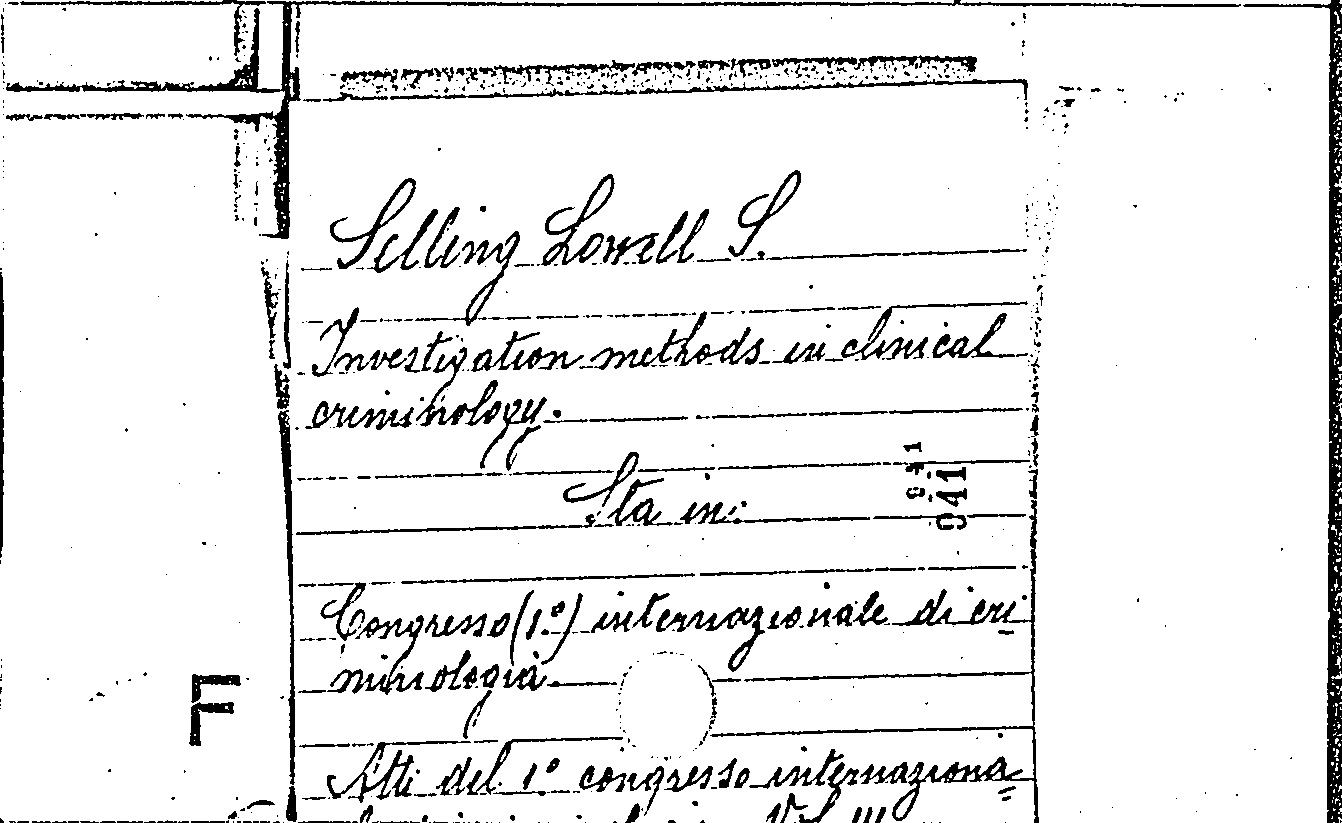 Selling Lowell S.
Investigation methods in clinical
criminology.
Sta in:
941
941
Congresso (1.º) internazionale di cri
minologia.
F
Atti del 1.º congresso internaziona=
Vol. III